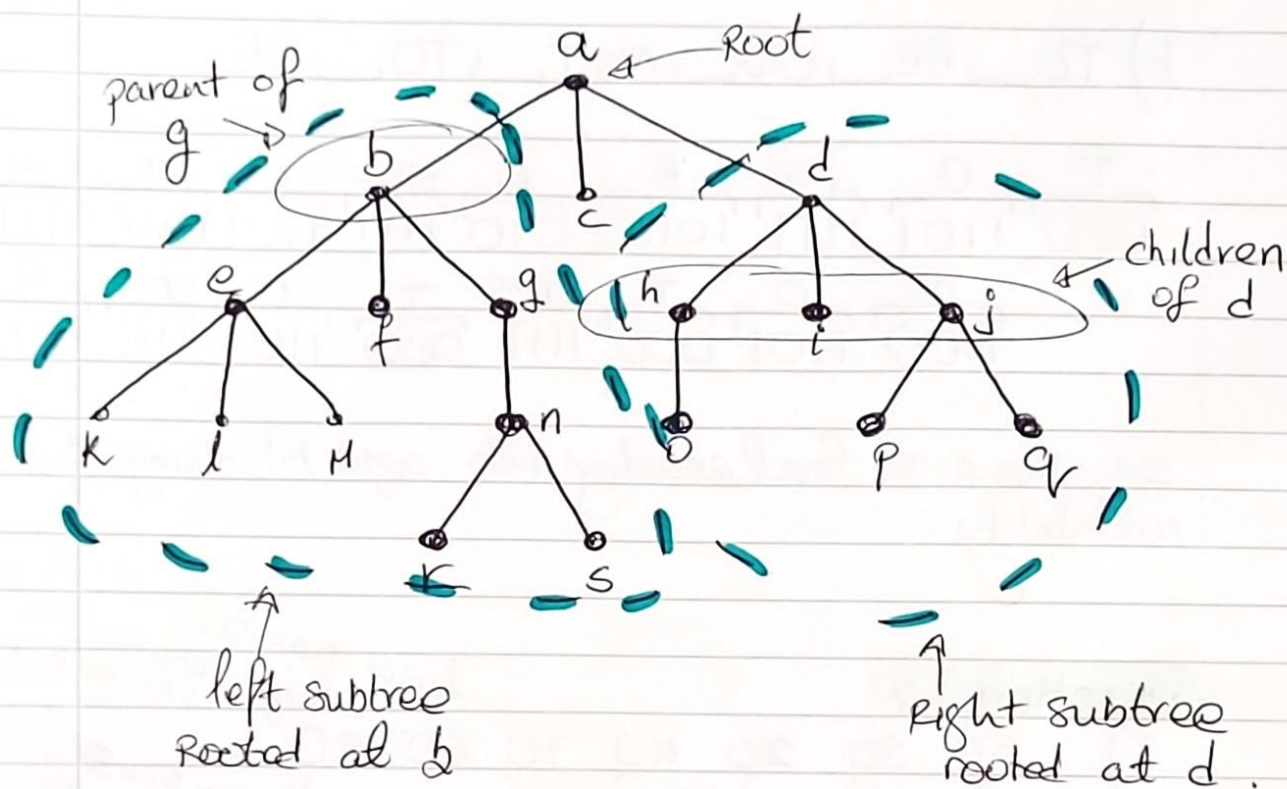 a
Root
parent of
g
b
d
c
children
of d
e
f
g
h
i
j
K
l
M
n
o
p
q
r
s
left subtree
Rooted at b
Right subtree
rooted at d.